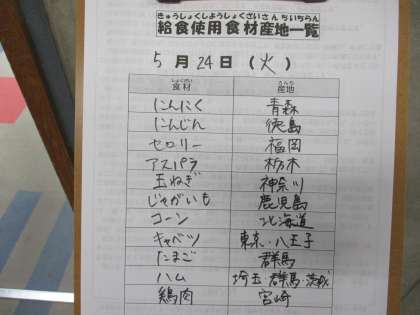 きゅうしょくしようしょくざいさんちいちらん
給食使用食材産地一覧
5月24日(火)
しょくざい さんち
食材 産地
にんにく 青森
にんじん 徳島
セロリー 福岡
アスパラ 栃木
玉ねぎ 神奈川
じゃがいも 鹿児島
コーン 北海道
キャベツ 東京・八王子
たまご 群馬
ハム 埼玉 群馬・茨城
鶏肉 宮崎